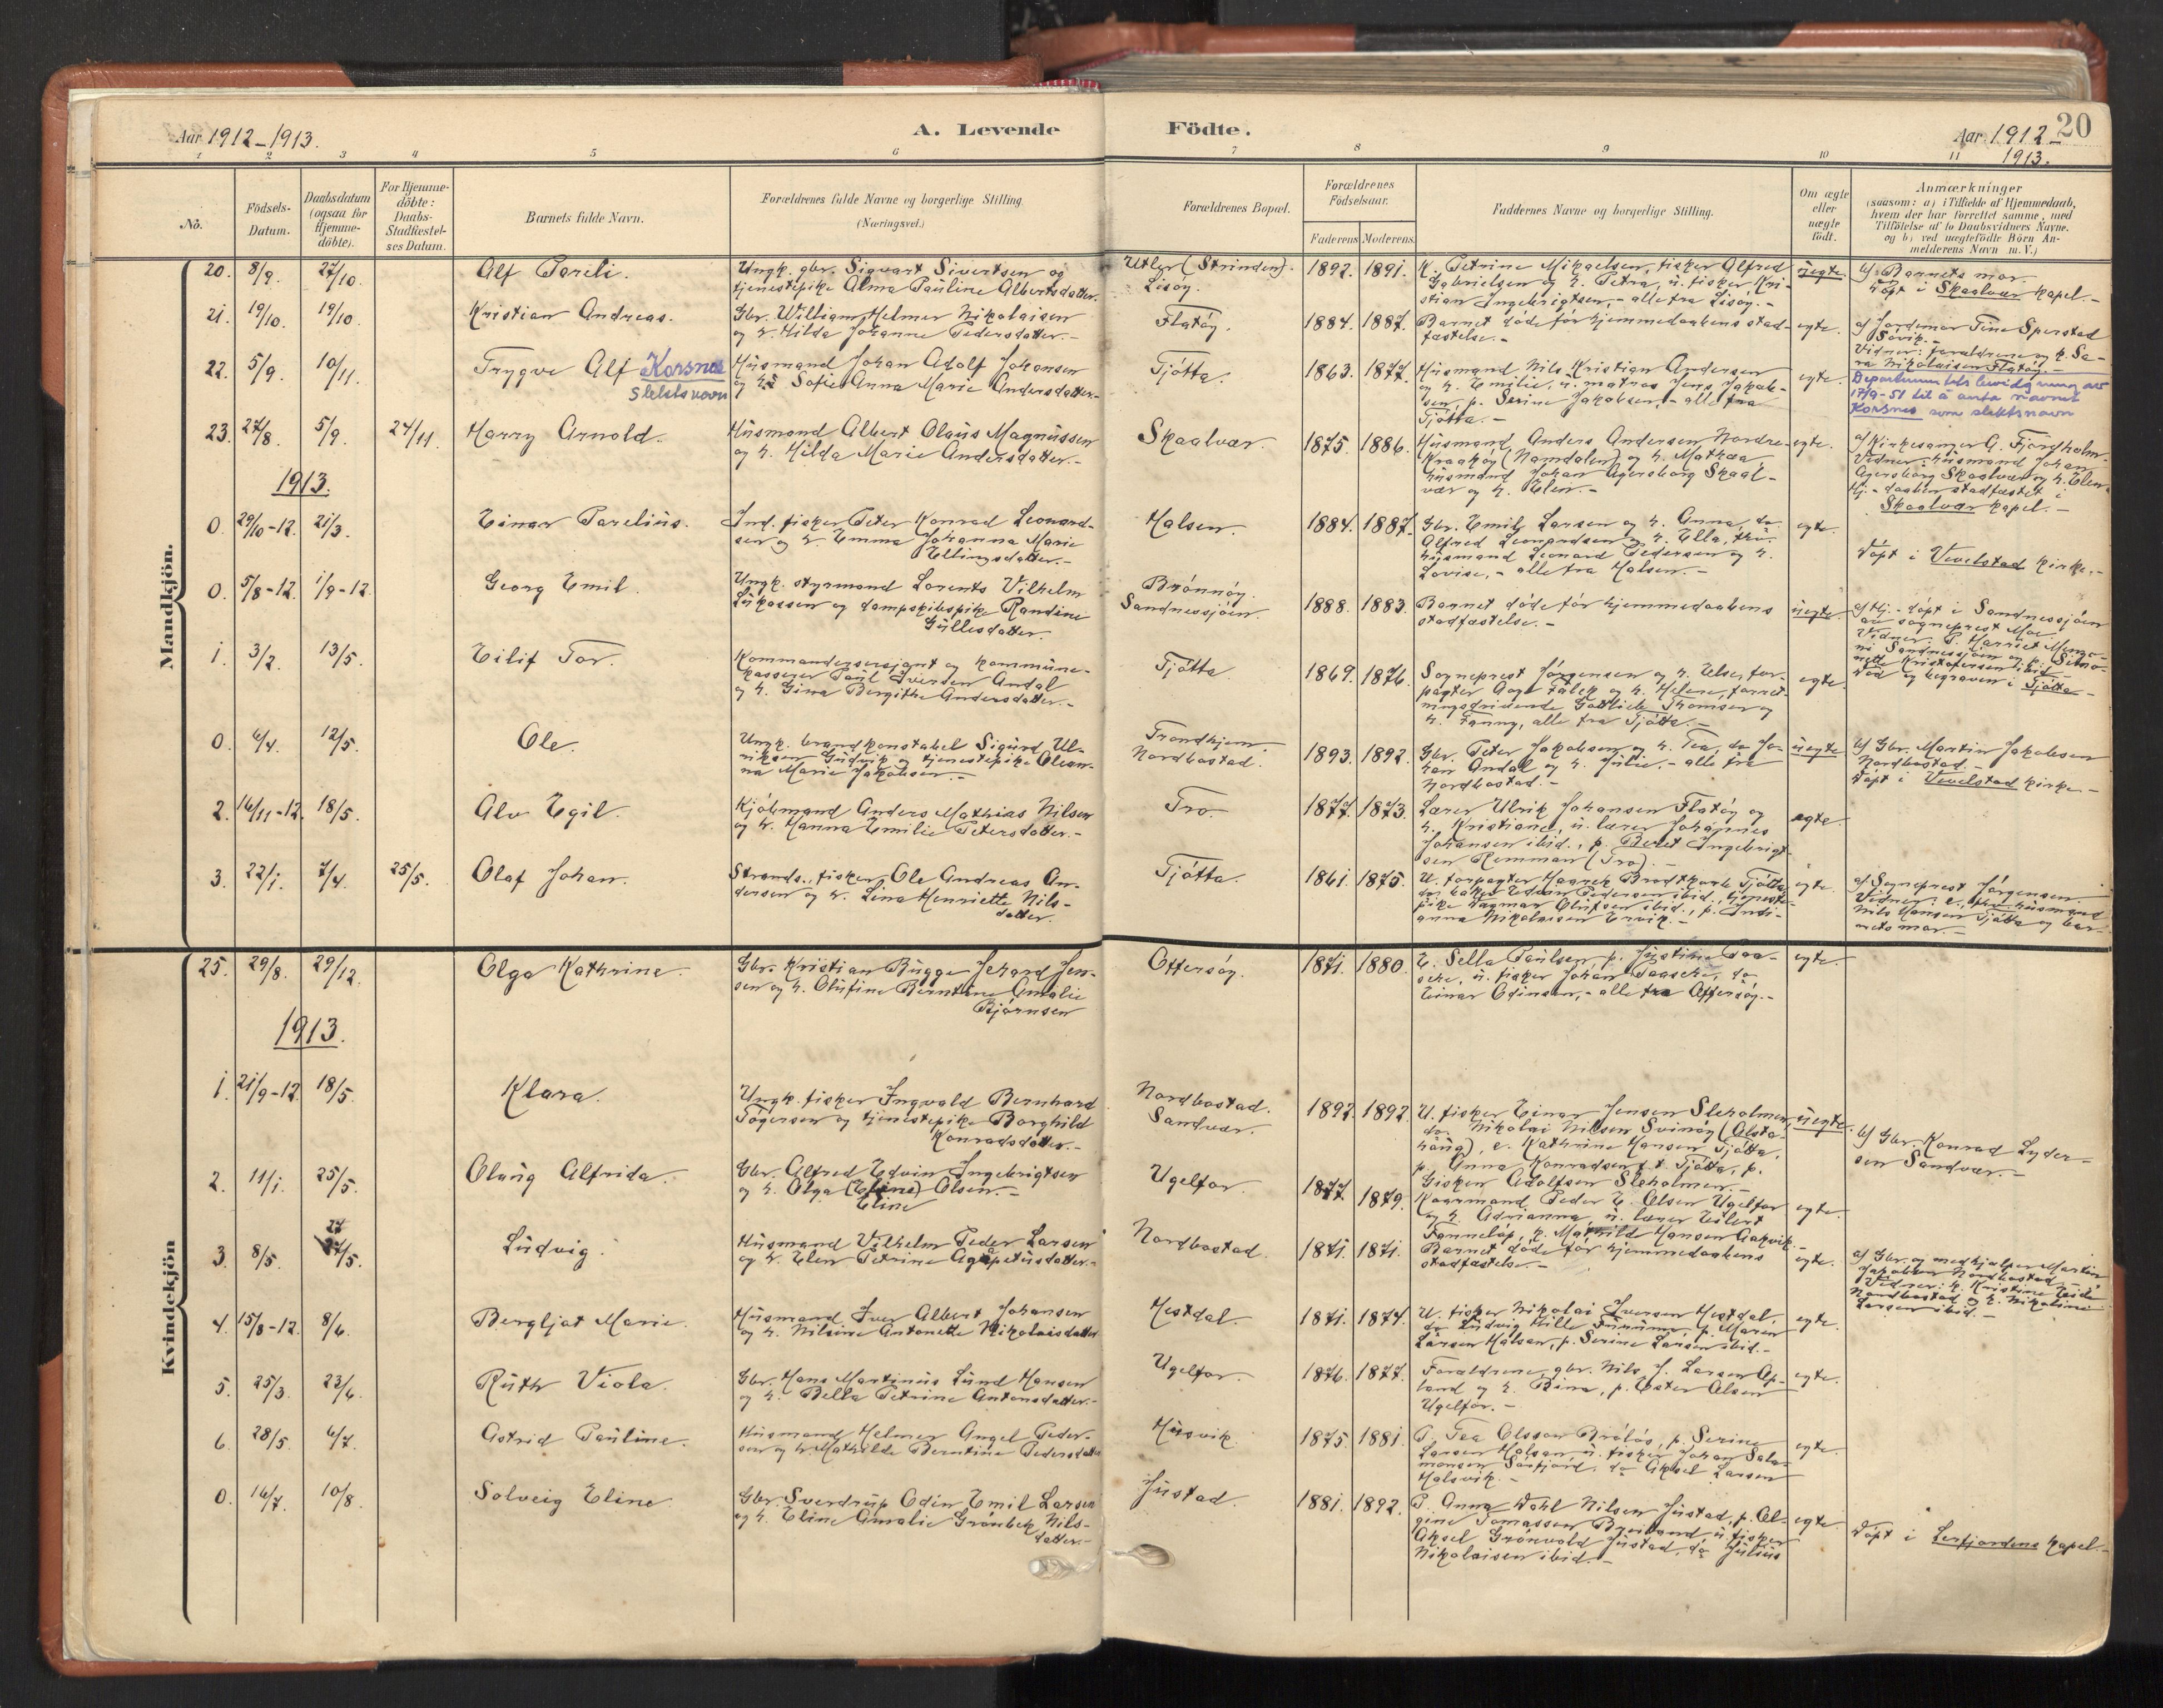 Aar 1912-1913.
A. Levende
Födte.
Aar 1912-
1913.
20
1 2 3 4 5 6 7 8 9 10 11
No.
Födsels-
Datum.
Daabsdatum
(ogsaa for
Hjemme-
döbte).
For Hjemme-
döbte:
Daabs-
Stadfæstel-
ses Datum.
Barnets fulde Navn.
Forældrenes fulde Navne og borgerlige Stilling
(Næringsvei.)
Forældrenes Bopæl.
Forældrenes
Födselsaar.
Faderens Moderens
Faddernes Navne og borgerlige Stilling.
Om ægte
eller
uægte
födt.
Anmærkninger
(saasom: a) i Tilfælde af Hjemmedaab,
hvem der har forrettet samme, med
Tilföielse af to Daabsvidners Navne.
og b) ved uægtefödte Börn An-
melderens Navn m.V.)
Mandkjön.
20. 8/9. 27/10. Alf Pareli.
Ungk. gbr. Sigvart Sivertsen og
tjenestepike Alma Pauline Albertsdatter.
Utlyr (Strinden).
Lisøy.
1892. 1891.
K. Petrine Mikaelsen, fisker Alfred
Gabrielsen og h. Petra, u. fisker Kri-
stian Ingebrigtsen, - alle fra Lisøy. -
uegte.
b) Barnets mor.
Døpt i Skaalvær kapel. -
21. 19/10. 19/10. Kristian Andreas.
Gbr. William Helmer Nikolaisen
og h. Hilda Johanne Pedersdatter. -
Flatøy.
1884. 1887.
Barnet døde før hjemmedaabens stad-
fæstelse. -
egte.
a) Jordemor Tine Sperstad
Søvik. -
Vidner: foreldrene og k. Sa-
ra Nikolaisen Flatøy. -
22. 5/9. 10/11. Trygve Alf Korsnes
slektsnavn
Husmand Johan Adolf Johansen
og h. Sofie Anna Marie Andersdatter. -
Tjøtta.
1863. 1877.
Husmand Nils Kristian Andersen
og h. Emilie, u. matros Jens Jakob-
sen, p. Serine Jakobsen, - alle fra
Tjøtta. -
egte.
Departementets bevidgning av
17/9-51 til å anta navnet
Korsnes som slektsnavn
23. 27/8. 5/9. 24/11. Harry Arnold.
Husmand Albert Olaus Magnussen
og h. Hilda Marie Andersdatter. -
Skaalvær.
1875. 1886.
Husmand Anders Andersen Nordre-
Kraakøy (Namdalen) og h. Mathea
husmand Johan Agersborg Skaal-
vær og h. Elen. -
egte.
a) Kirkesanger G. Fjordholm.
Vidner: husmand Johan
Agersborg Skaalvær og h. Elen.
Hj.-daaben stadfæstet i
Skaalvær kapel. -
1913.
0. 29/10-12. 21/3. Einar Parelius.
Ind. fisker Peter Konrad Leonard-
sen og h. Emma Johanna Marie
Ellingsdatter. -
Halsen.
1884. 1887.
Gbr. Emil Larsen og h. Anna, do
Alfred Leonardsen og h. Ella, fhv.
husmand Leonard Pedersen og h.
Lovise, - alle fra Halsen. -
egte.
Døpt i Vevelstad kirke. -
0. 5/8-12. 1/9-12. Georg Emil.
Ungk. styrmand Lorents Vilhelm
Lukassen og dampskibspike Randine
Gullesdatter.
Brønnøy.
Sandnessjøen.
1888. 1883.
Barnet døde før hjemmedaabens
stadfæstelse. -
uegte.
a) Hj.-døpt i Sandnessjøen
av sogneprest Moe.
Vidner: P. Harriet Mengo-
ni Sandnessjøen og p. Simo-
nette Kristofersen ibid. -
Død og begraven i Tjøtta. -
1. 3/2. 13/5. Eilif Tor.
Kommandersersjant og kommune-
kasserer Paul Iversen Andal
og h. Gina Bergithe Andersdatter. -
Tjøtta.
1869. 1876.
Sogneprest Jørgensen og h. Else, for-
pagter Aage Falck og h. Helene, forret-
ningsdrivende Gottlieb Thomsen og
h. Fanny, alle fra Tjøtta. -
egte.
0. 6/4. 12/5. Ole.
Ungk. brandkonstabel Sigurd Ul-
riksen Gudvik og tjenestepike Olean-
na Marie Jakobsen. -
Trondhjem.
Nordbostad.
1893. 1892.
Gbr. Peter Jakobsen og h. Tea, do Jo-
han Andal og h. Julie, - alle fra
Nordbostad. -
uegte
b) Gbr. Martin Jakobsen
Nordbostad. -
Døpt i Vevelstad kirke. -
2. 16/11-12. 18/5. Alv Egil.
Kjøbmand Anders Mathias Nilsen
og h. Hanna Emilie Petersdatter. -
Tro.
1877. 1873.
Lærer Ulrik Johansen Flatøy og
h. Kristiane, u. lærer Johannes
Johansen ibid., p. Beret Ingebrigt-
sen Remman (Tro). -
egte.
3. 22/1. 7/4. 25/5. Olaf Johan.
Strands., fisker Ole Andreas An-
dersen og h. Lina Henriette Nils-
datter.
Tjøtta.
1861. 1875.
U. forpagter Haarek Brodtkorb Tjøtta,
do baker Edvin Pedersen ibid., tjeneste-
pike Dagmar Olufsen ibid., p. Indi-
anna Nikolaisen Ervik. -
egte.
a) Sogneprest Jørgensen.
Vidner: e., fhv. husmand
Nils Hansen Tjøtta og bar-
nets mor. -
Kvindekjön
25. 29/8. 29/12. Olga Kathrine.
Gbr. Kristian Bugge Jehard Jen-
sen og h. Olufine Berntine Amalie
Bjørnsen
Offersøy.
1871. 1880.
E. Sella Paulsen, p. Justine Paa-
sche, u. fisker Johan Paasche, do
Einar Edinsen, - alle fra Offersøy. -
egte.
1913.
1. 21/9-12. 18/5. Klara.
Ungk. fisker Ingvald Bernhard
Tøgersen og tjenestepike Borghild
Konradsdatter. -
Nordbostad.
Sandvær.
1892. 1892.
U. fisker Einar Jensen Sleholmen,
do Nikolai Nilsen Svinøy (Alsta-
haug), e. Kathrine Hansen Tjøtta,
p. Anna Konradsen p.t. Tjøtta, p.
Gisken Adolfsen Sleholmen. -
uegte.
b) Gbr. Konrad Lyder-
sen Sandvær. -
2. 11/1. 25/5. Olaug Alfrida.
Gbr. Alfred Edvin Ingebrigtsen
og h. Olga (Eline) Olsen. -
Eline
Ugelfor.
1877. 1879.
Kaarmand Peder E. Olsen Ugelfor
og h. Adrianna, u. lærer Eilert
Fonneløp, p. Mathild Hansen Aakvik. -
egte.
3. 8/5. 27/5. Ludvig.
Husmand Vilhelm Peder Larsen
og h. Elen Petrine Agapetusdatter. -
Nordbostad.
1871. 1871.
Barnet døde før hjemmedaabens
stadfæstelse. -
egte.
a) Gbr. og medhjælper Martin
Jakobsen Nordbostad.
Vidner: k. Kristine Eidi
Nordbostad og k. Nikoline
Larsen ibid. -
4. 15/8-12. 8/6. Bergljot Marie.
Husmand Iver Albert Johansen
og h. Nilsine Antonette Nikolaisdatter
Hestdal.
1871. 1874.
U. fisker Nikolai Iversen Hestdal,
do Ludvig Hille Furunes, p. Maren
Larsen Halsen, p. Serine Larsen ibid. -
egte.
5. 25/3. 22/6. Ruth Viola.
Gbr. Hans Martinus Lund Hansen
og h. Bella Petrine Antonsdatter. -
Ugelfor.
1876. 1877.
Forældrene, gbr. Nils J. Larsen Op-
land og h. Bina, p. Ester Olsen
Ugelfor. -
egte.
6. 28/5. 6/7. Astrid Pauline.
Husmand Helmer Angel Peder-
sen og h. Mathilde Berntine Pedersdatter
Husvik.
1875. 1881.
P. Tea Olsson Bråløs, p. Serine
Larsen Halsen, u. fisker Johan Salo-
monsen Sørfjord, do Aksel Larsen
Halsvik. -
egte.
0. 16/7. 10/8. Solveig Eline.
Gbr. Sverdrup Odin Emil Larsen
og h. Eline Amalie Grønbek Nils-
datter. -
Justad.
1881. 1892.
P. Anna Dahl Nilsen Justad, p. Al-
gine Tomassen Breiland, u. fisker
Aksel Grønvold Justad, do Julius
Nikolaisen ibid. -
egte.
Døpt i Leirfjordens kapel. -